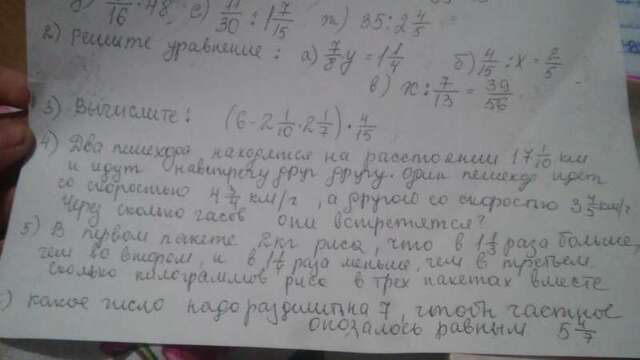 /16 · 48, е) 11/30 : 1 7/15 ж) 35 : 2 4/5
2) Решите уравнение: а) 7/8 y = 1 1/4 б) 4/15 : x = 2/5
в) x : 7/13 = 39/56
3) Вычислите: (6 - 2 1/10 · 2 1/7) · 4/15
4) Два пешехода находятся на расстоянии 17 1/10 км
и идут навстречу друг другу. Один пешеход идет
со скоростью 4 3/4 км/ч, а другого со скоростью 3 км/ч
Через сколько часов они встретятся?
5) В первом пакете 2кг риса, что в 1 1/3 раза больше,
чем во втором, и в раза меньше, чем в третьем.
сколько килограммов риса в трех пакетах вместе
) какое число надо разделить на 7, чтобы частное
оказалось равным 5 4/7